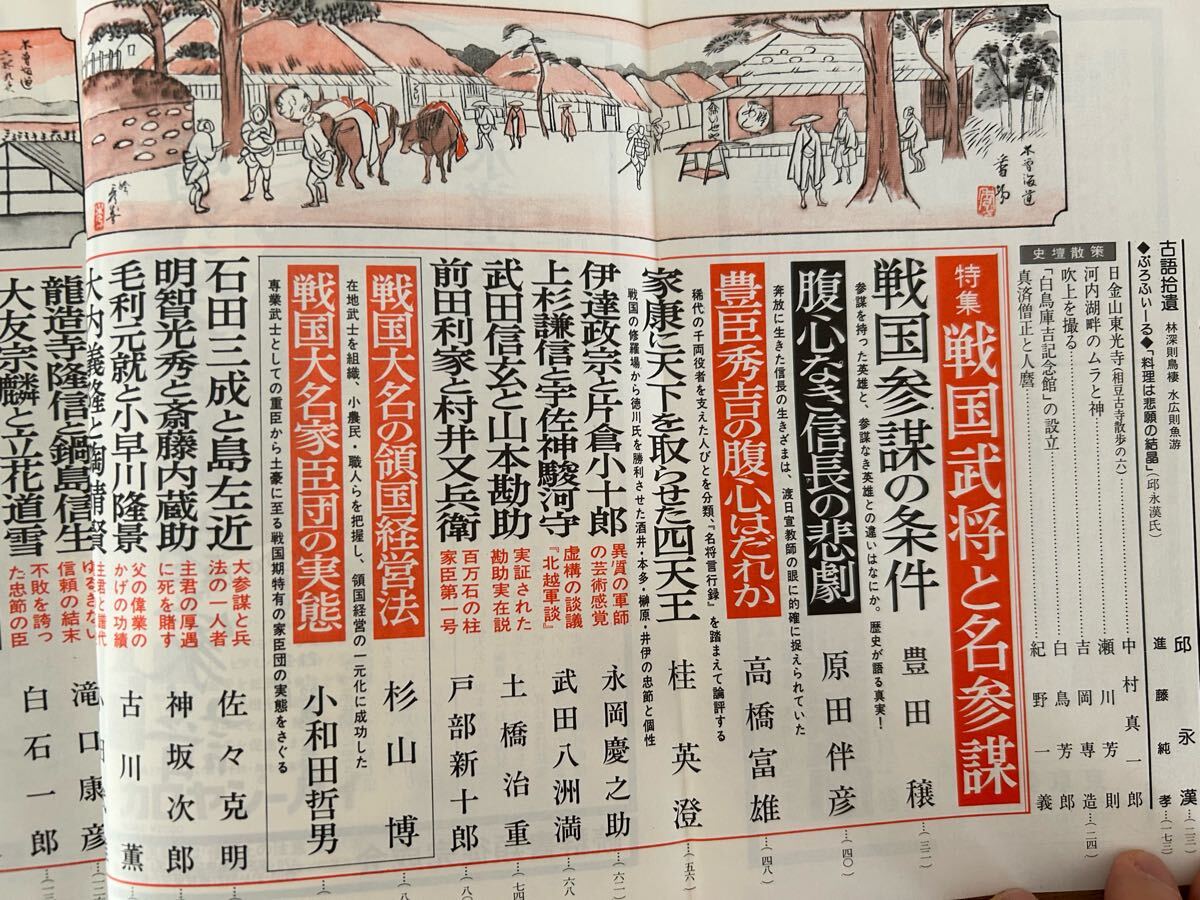 古語拾遺 林深則鳥棲 水広則魚游 邱永漢…(一三)
◆ぷろふぃーる◆「料理は悲願の結晶」(邱永漢氏) 進藤純孝…(一七三)
史壇散策
日金山東光寺(相豆古寺散歩の六) 中村真一郎
河内湖畔のムラと神 瀬川芳則
吹上を撮る 吉岡専造…(一二四)
「白鳥庫吉記念館」の設立 白鳥芳郎
真済僧正と人麿 紀野一義
特集 戦国武将と名参謀
戦国参謀の条件 豊田穣…(三二)
参謀を持った英雄と、参謀なき英雄との違いはなにか。歴史が語る真実!
腹心なき信長の悲劇 原田伴彦…(四〇)
奔放に生きた信長の生きざまは、渡日宣教師の眼に的確に捉えられていた
豊臣秀吉の腹心はだれか 高橋富雄…(四八)
稀代の千両役者を支えた人びとを分類、『名将言行録』を踏まえて論評する
家康に天下を取らせた四天王 桂英澄…(五六)
戦国の修羅場から徳川氏を勝利させた酒井・本多・榊原・井伊の忠節と個性
伊達政宗と片倉小十郎 異質の軍師の芸術感覚 永岡慶之助…(六二)
上杉謙信と宇佐神駿河守 虚構の談議『北越軍談』 武田八洲満…(六八)
武田信玄と山本勘助 実証された勘助実在説 土橋治重…(七四)
前田利家と村井又兵衛 百万石の柱家臣第一号 戸部新十郎…(八〇)
戦国大名の領国経営法 杉山博
在地武士を組織、小農民・職人らを把握し、領国経営の一元化に成功した
戦国大名家臣団の実態 小和田哲男
専業武士としての重臣から土豪に至る戦国期特有の家臣団の実態をさぐる
石田三成と島左近 大参謀と兵法の一人者 佐々克明
明智光秀と斎藤内蔵助 主君の厚遇に死を賭す 神坂次郎
毛利元就と小早川隆景 父の偉業のかげの功績 古川薫
大内義隆と陶晴賢
龍造寺隆信と鍋島信生 ゆるぎない信頼の結末 滝口康彦
大友宗麟と立花道雪 不敗を誇った忠節の臣 白石一郎
木曽海道